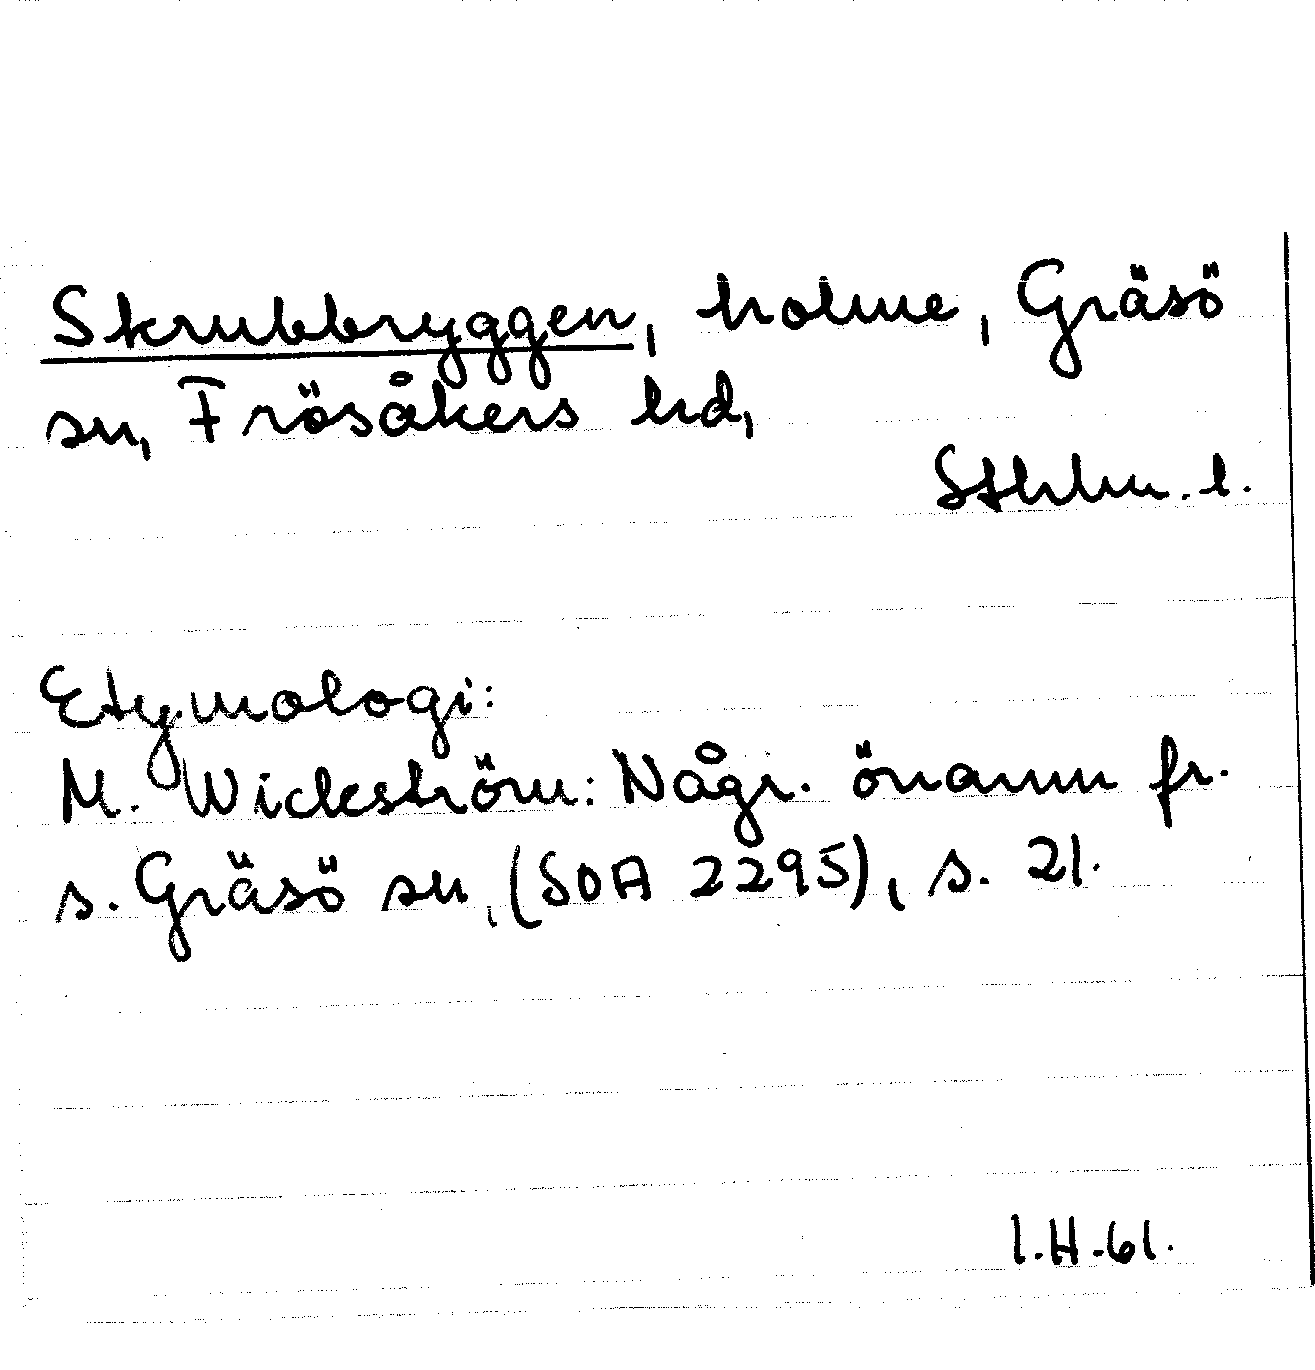 Skrubbryggen, holme, Gräsö
sn, Frösåkers hd,
Sthlm. l.
Etymologi:
M. Wickström: Någr. önamn fr.
s. Gräsö sn, (SOA 2295), s. 21.
I.H.-61.